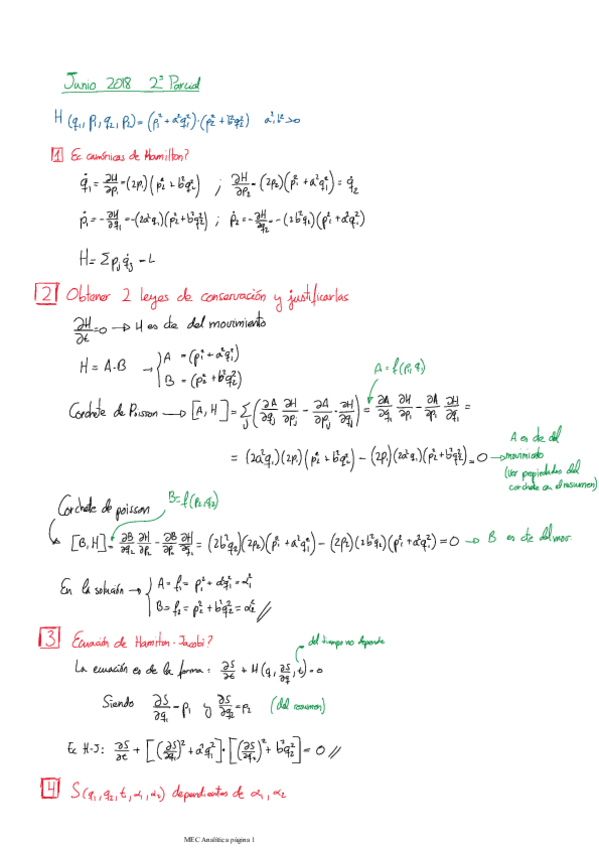 Junio 2018 2º Parcial
H (q₁, p₁, q₂, p₂) = (p₁² + a²q₁²)·(p₂² + b²q₂²) a², b² > 0
1 Ec canónicas de Hamilton?
q̇₁ = ∂H/∂p₁ = (2p₁)(p₂² + b²q₂²) ; ∂H/∂p₂ = (2p₂)(p₁² + a²q₁²) = q̇₂
ṗ₁ = -∂H/∂q₁ = -(2a²q₁)(p₂² + b²q₂²) ; ṗ₂ = -∂H/∂q₂ = -(2b²q₂)(p₁² + a²q₁²)
H = Σ pⱼ q̇ⱼ - L
2 Obtener 2 leyes de conservación y justificarlas
∂H/∂t = 0 → H es cte del movimiento
H = A·B → { A = (p₁² + a²q₁²)
B = (p₂² + b²q₂²)
A = f(p₁, q₁)
Corchete de Poisson → [A, H] = Σⱼ (∂A/∂qⱼ ∂H/∂pⱼ - ∂A/∂pⱼ · ∂H/∂qⱼ) = ∂A/∂q₁ ∂H/∂p₁ - ∂A/∂p₁ ∂H/∂q₁ =
= (2a²q₁)(2p₁)(p₂² + b²q₂²) - (2p₁)(2a²q₁)(p₂² + b²q₂²) = 0 →
A es cte del
movimiento
(Ver propiedades del
corchete en el resumen)
Corchete de poisson
B = f(p₂, q₂)
[B, H] = ∂B/∂q₂ ∂H/∂p₂ - ∂B/∂p₂ ∂H/∂q₂ = (2b²q₂)(2p₂)(p₁² + a²q₁²) - (2p₂)(2b²q₂)(p₁² + a²q₁²) = 0 → B es cte del mov.
En la solución → { A = f₁ = p₁² + a²q₁² = α₁²
B = f₂ = p₂² + b²q₂² = α₂² //
3 Ecuación de Hamilton-Jacobi?
del tiempo no depende
La ecuación es de la forma: ∂S/∂t + H(q, ∂S/∂q, t) = 0
Siendo ∂S/∂q₁ = p₁ y ∂S/∂q₂ = p₂ (del resumen)
Ec H-J: ∂S/∂t + [(∂S/∂q₁)² + a²q₁²]·[(∂S/∂q₂)² + b²q₂²] = 0 //
4 S(q₁, q₂, t, α₁, α₂) dependientes de α₁, α₂
MEC Analítica página 1